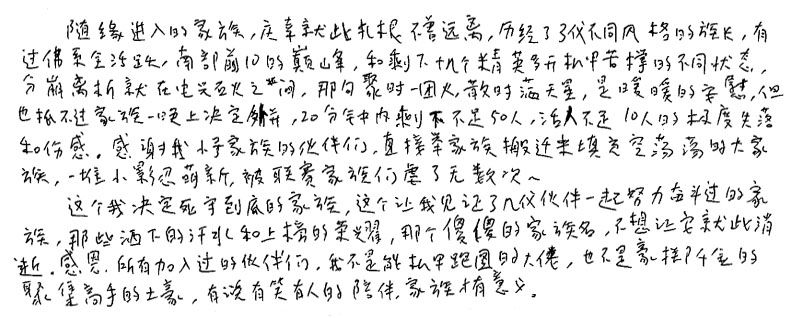 随缘进入的家族，庆幸就此扎根不曾远离，历经了3代不同风格的族长，有
过佛系全活跃，南部前10的巅峰，和剩下十几个精英多开机甲苦撑的不同状态，
分崩离析就在电光石火之间，那句聚时一团火，散时满天星，是暖暖的安慰，但
也抵不过家族一晚上决定合并，20分钟内剩下不足50人，活人不足10人的极度失落
和伤感。感谢我小子家族的伙伴们，直接举家族搬迁来填充空荡荡的大家
族，一堆小影忍萌新，被联赛家族们虐了无数次～
这个我决定死守到底的家族，这个让我见证了几代伙伴一起努力奋斗过的家
族，那些洒下的汗水和上榜的荣耀，那个傻傻的家族名，不想让它就此消
逝。感恩，所有加入过的伙伴们，我不是能机甲跑图的大佬，也不是豪掷千金的
聚集高手的土豪，有说有笑有人的陪伴，家族才有意义。